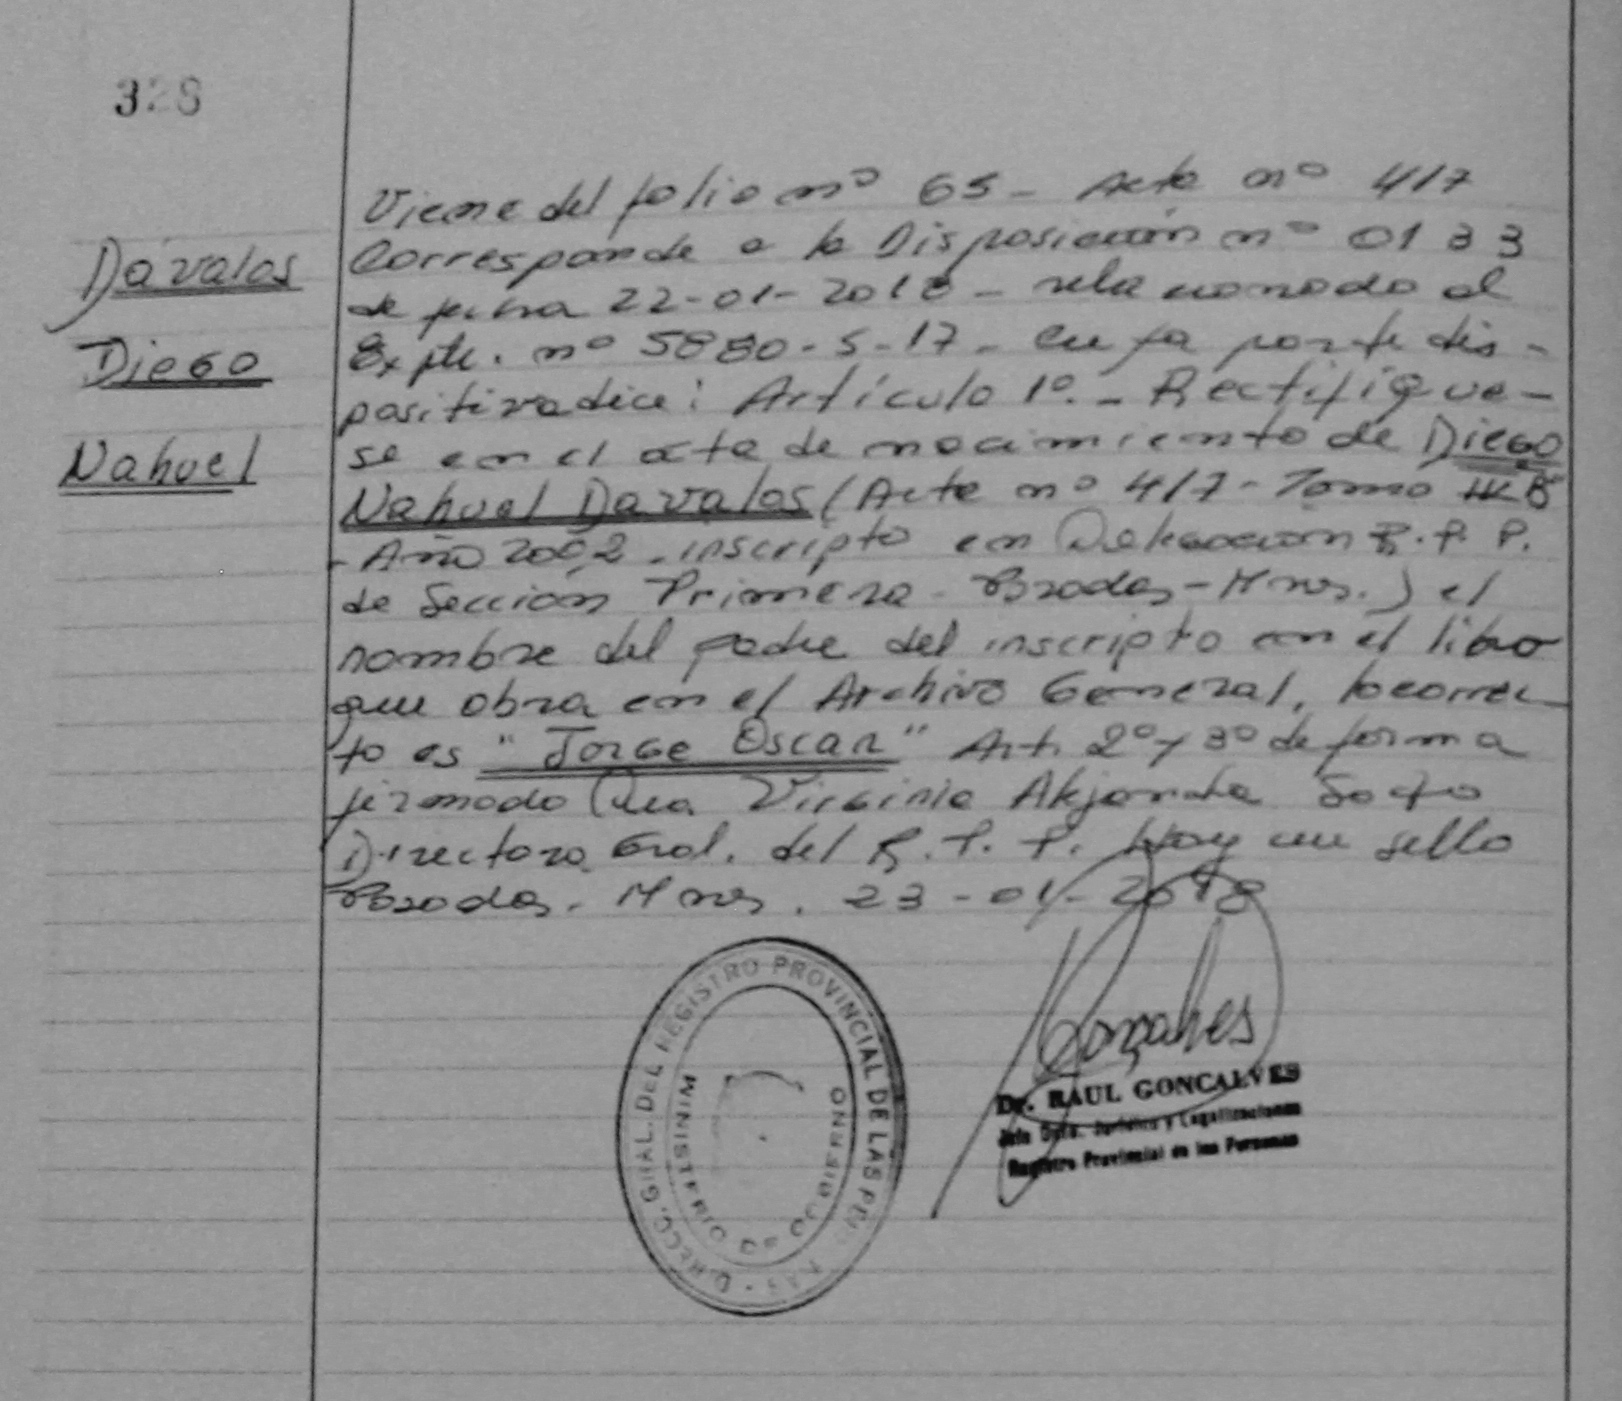 328
Davalos
Diego
Nahuel
Viene del folio nº 65 - Acta nº 417
Corresponde a la Disposición nº 0133
de fecha 22-01-2018 - relacionado al
Expte. nº 5880-S-17 - cuya parte dis-
positiva dice: Artículo 1º. - Rectifíque-
se en el acta de nacimiento de Diego
Nahuel Davalos (Acta nº 417 - Tomo
- Año 2002 - inscripto en Delegación R.P.P.
de Sección Primera - Posadas - Mnes.) el
nombre del padre del inscripto en el libro
que obra en el Archivo General, lo correc-
to es "Jorge Oscar" Art. 2º y 3º de forma
firmado Dra. Virginia Alejandra Soto
Directora Gral. del R.P.P. Hay un sello
Posadas. Mnes. 23-01-2018
DIRECC. GRAL. DEL REGISTRO PROVINCIAL DE LAS PERSONAS
MINISTERIO DE GOBIERNO
Goncalves
Dr. RAUL GONCALVES
Jefe Dpto. Jurídico y Legalizaciones
Registro Provincial de las Personas